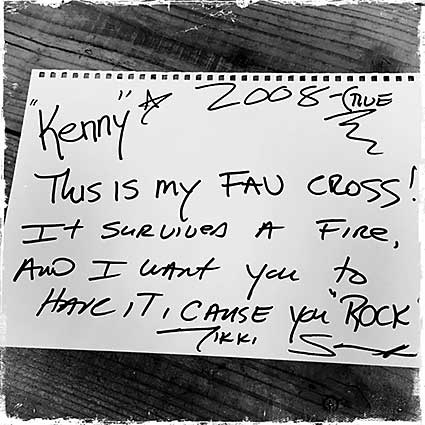 2008 - CRUE
"Kenny"
This is my FAV CROSS!
It SURVIVED A FIRE,
AND I WANT you to
HAVE IT, CAUSE you "ROCK"
Nikki S